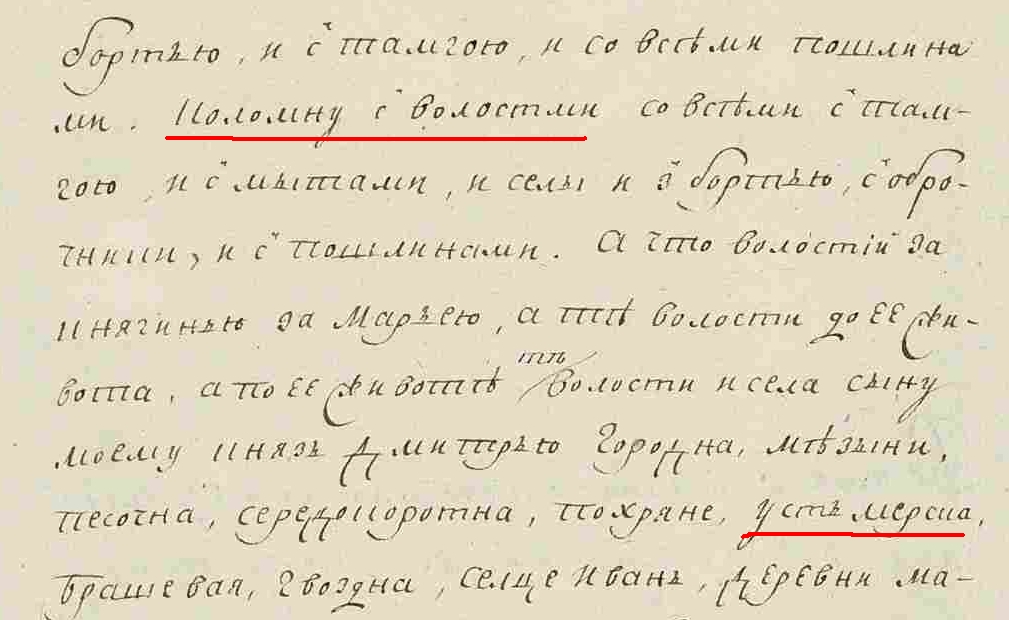 бортью, и с тамгою, и со всѣми пошлина
ми. Коломну с волостми со всѣми с там-
гою, и с мытами, и селы и з бортью, с обро-
чники, и с пошлинами. А что волостій за
княгинью за Марьею, а тѣ волости до ее жи-
вота, а по ее животѣ тѣ волости и села сыну
моему князь Дмитрью Городна, мѣзыни,
песочна, середокоротна, похряне, усть мерска,
брашевая, гвоздна, селце Иванъ, деревни ма-